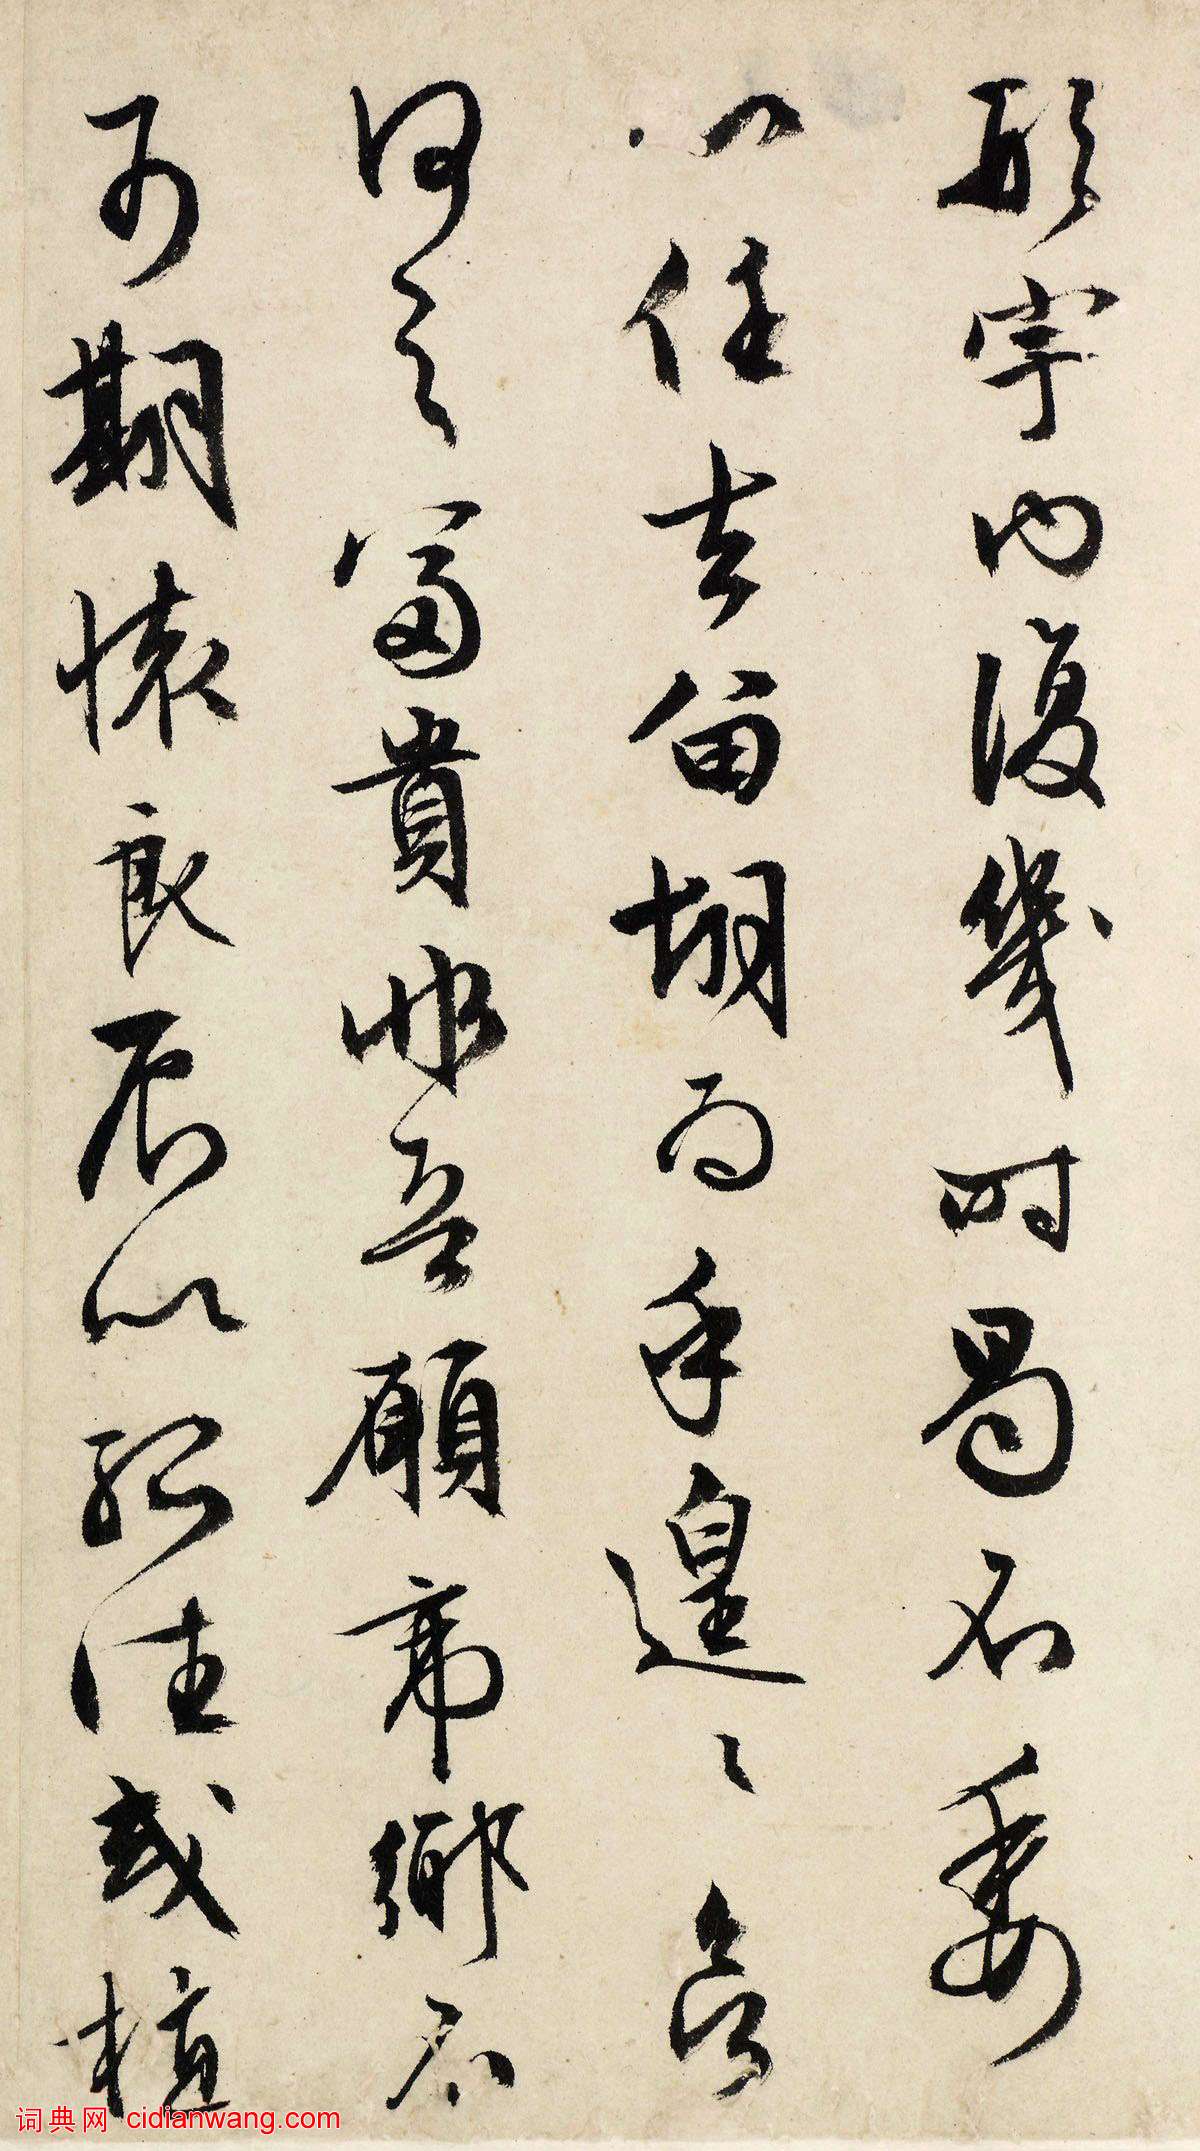 形宇内復幾时曷不委
心任去留胡为乎遑〻欲
何之富貴非吾願帝鄉不
可期懷良辰以孤往或植
词典网 cidianwang.com